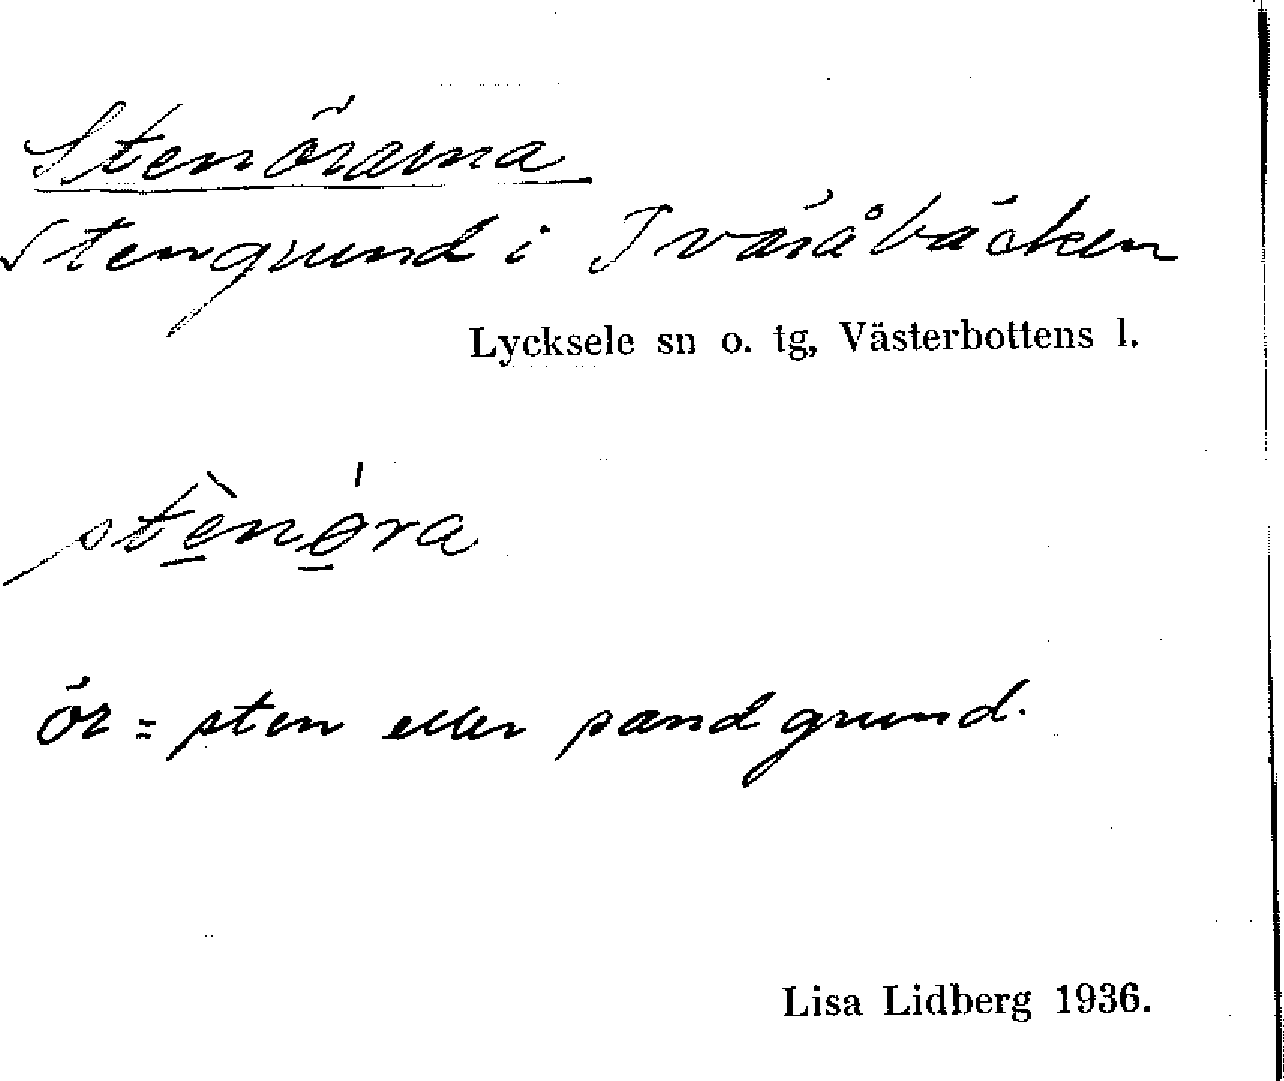 Stenörarna
Stengrund i Tväråbäcken
Lycksele sn o. tg, Västerbottens l.
stènө́ra
ör = sten eller sandgrund.
Lisa Lidberg 1936.